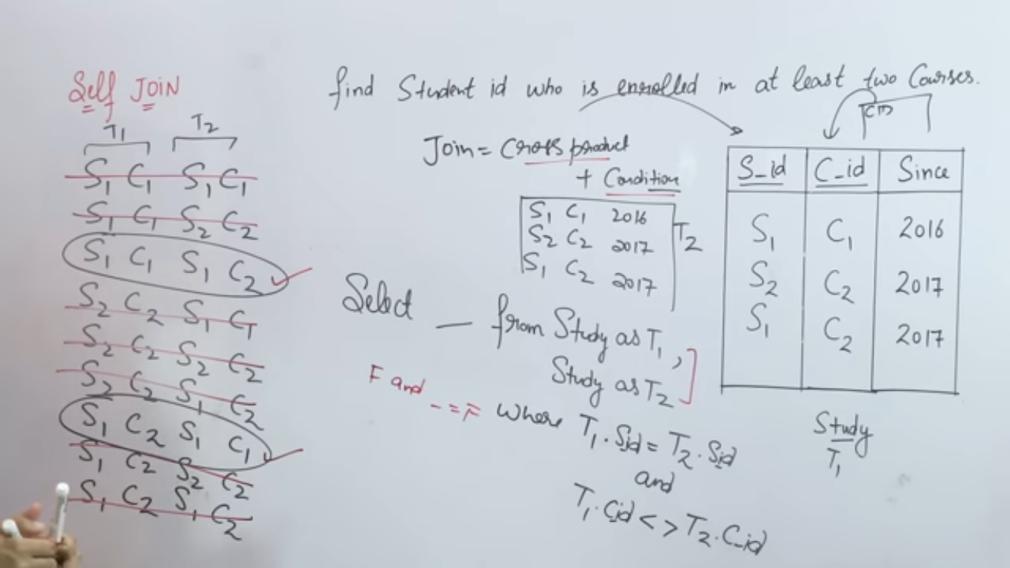 Self JOIN
T1 T2
S1 C1 S1 C1
S1 C1 S2 C2
S1 C1 S1 C2
S2 C2 S1 C1
S2 C2 S2 C2
S2 C2 S1 C2
S1 C2 S1 C1
S1 C2 S2 C2
S1 C2 S1 C2
find Student id who is enrolled in at least two Courses.
Join = Cross product
+ Condition
S1 C1 2016
S2 C2 2017
S1 C2 2017
T2
Select — from Study as T1,
Study as T2
F and - = F
where T1.Sid = T2.Sid
and
T1.Cid <> T2.C_id
S_id C_id Since
S1 C1 2016
S2 C2 2017
S1 C2 2017
Study
T1